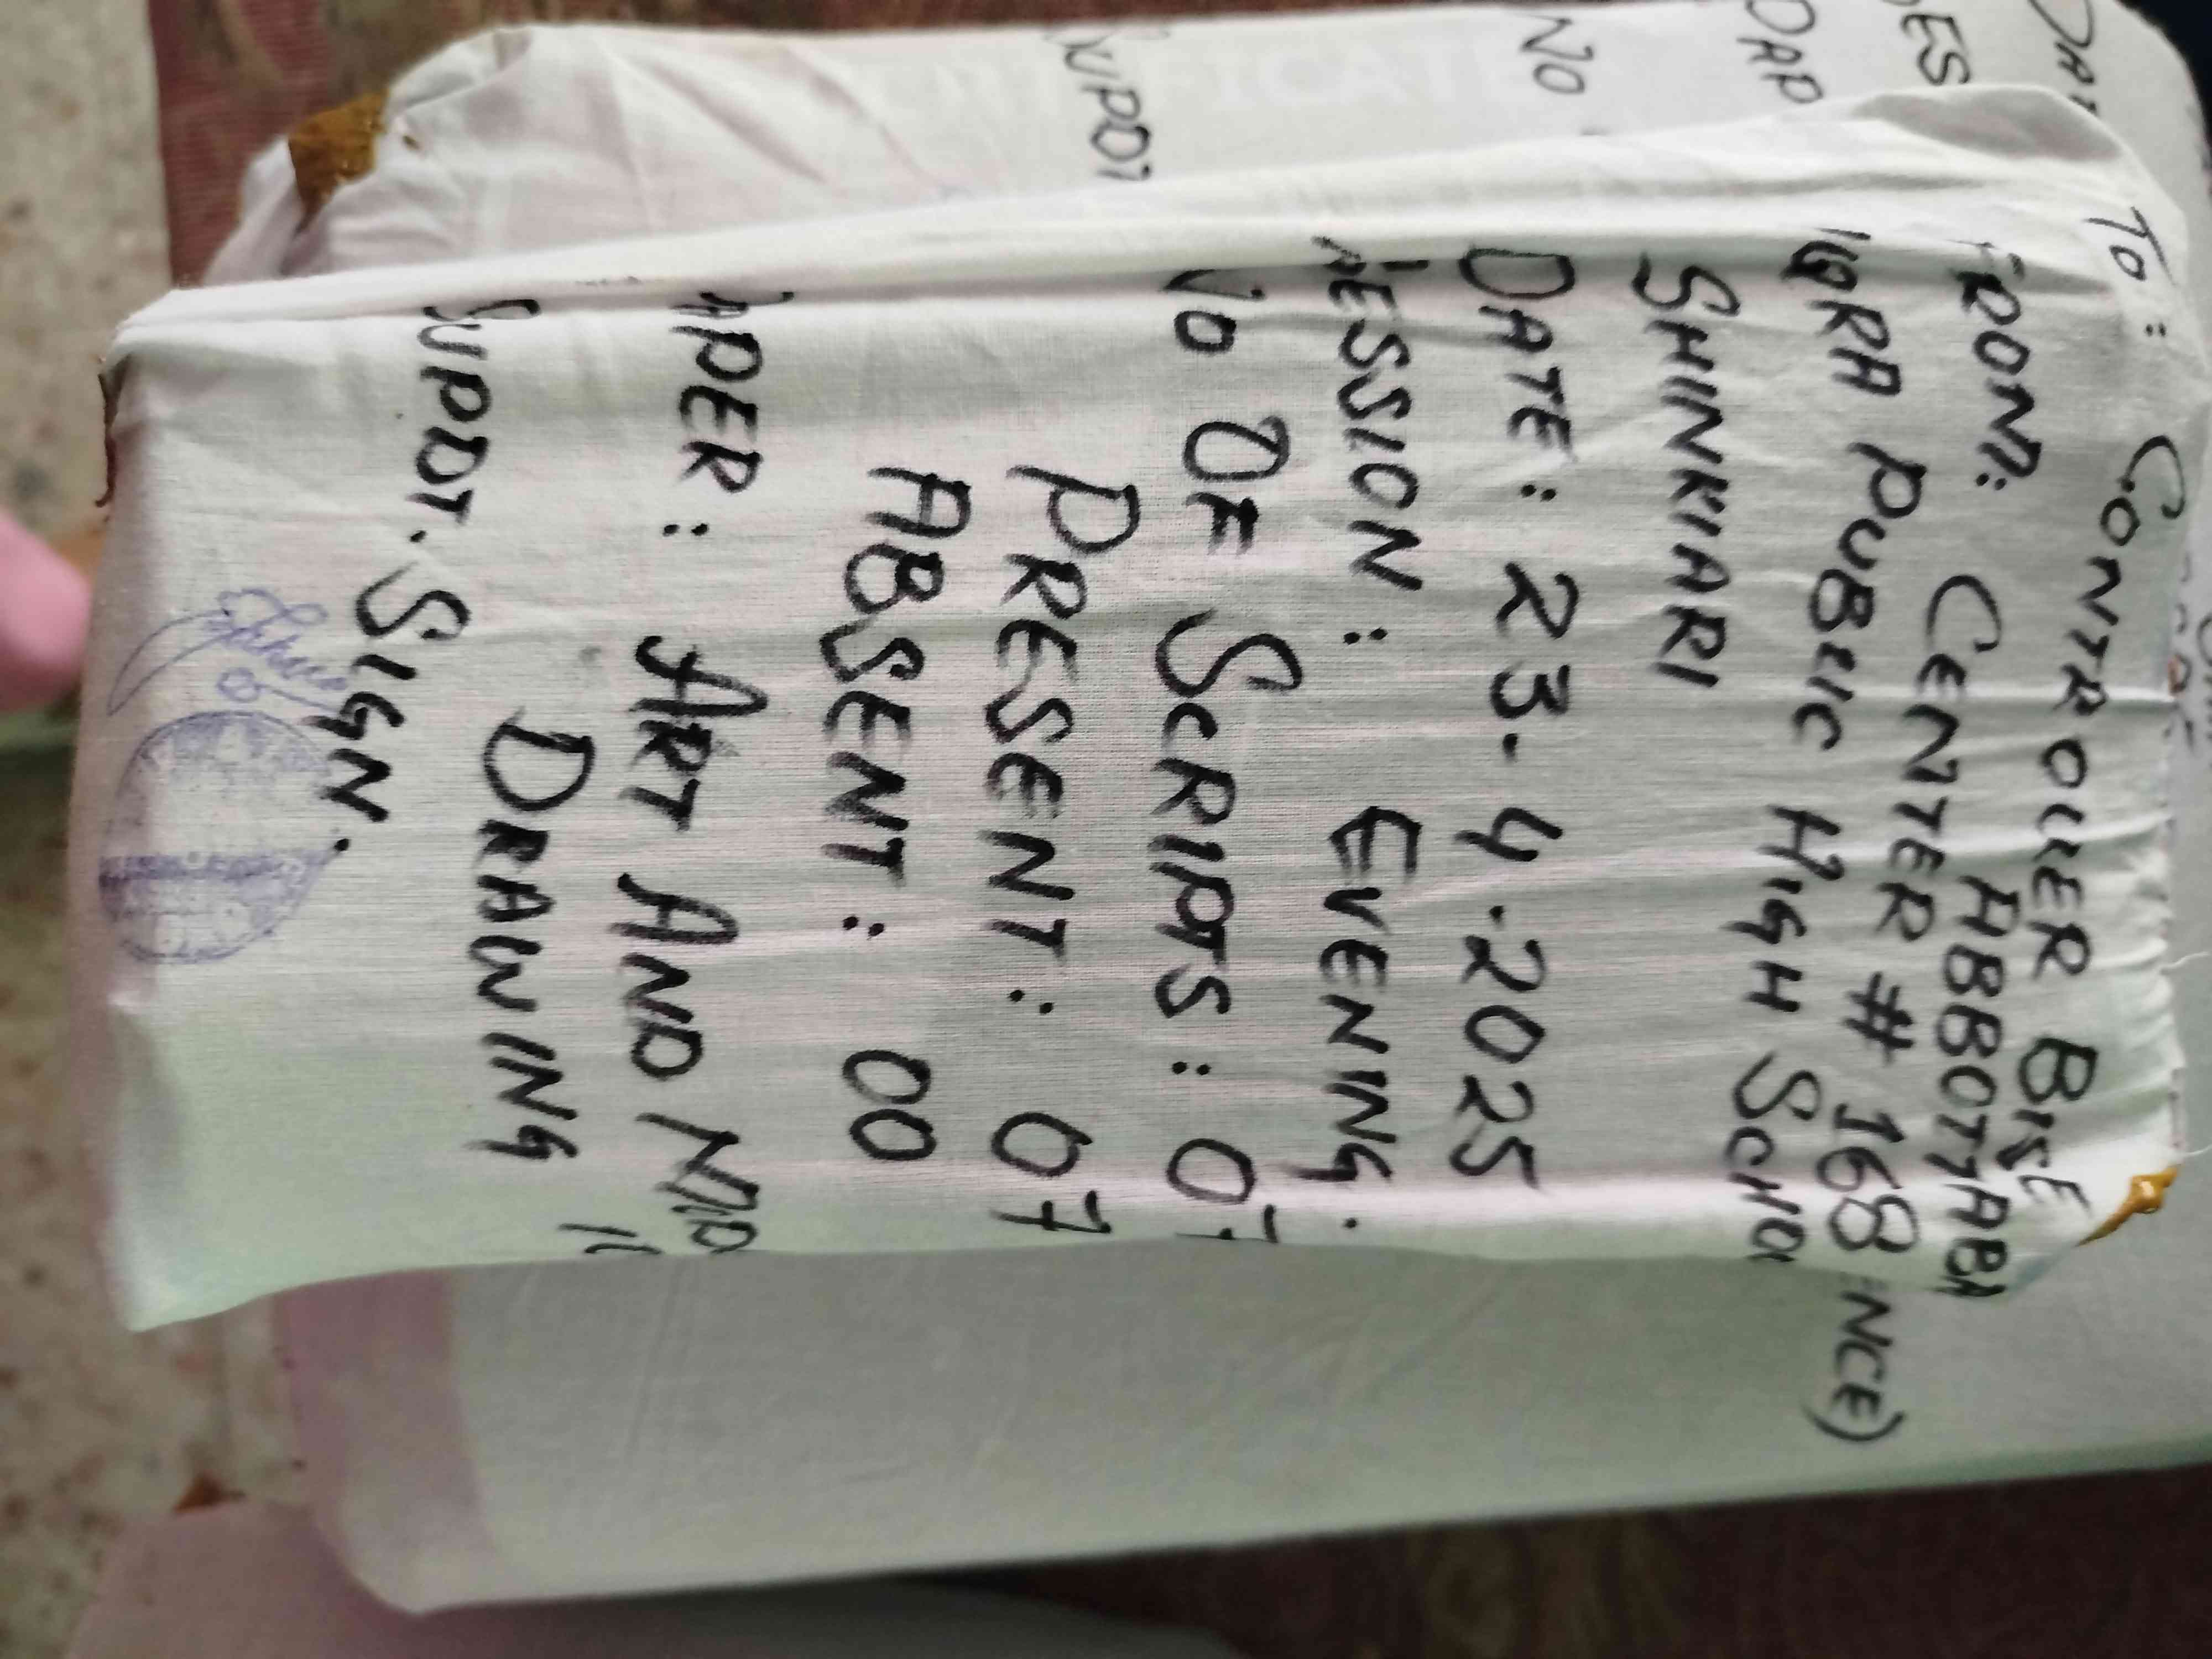 To: CONTROLLER BISE
ABBOTTABA
FROM: CENTER # 168
IQRA PUBLIC HIGH SCHOO
SHINKIARI
DATE: 23-4-2025
SESSION: EVENING.
NO OF SCRIPTS: 07
PRESENT: 07
ABSENT: 00
PAPER: ART AND MO
DRAWING
SUPDT. SIGN.
ENCE)
NO
SUPDT